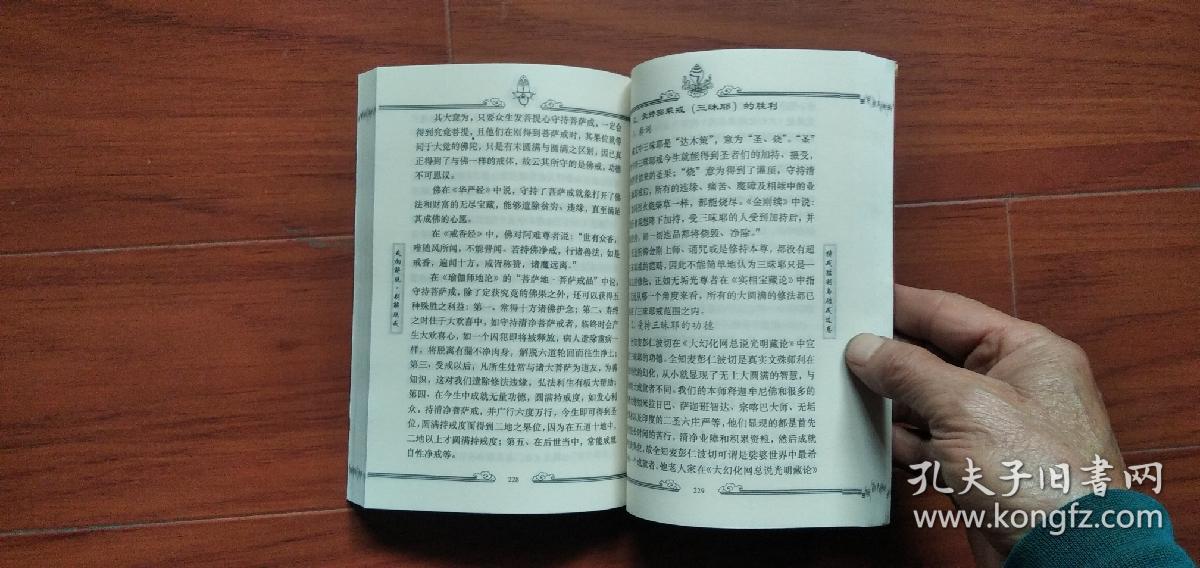 其大意为，只要众生发菩提心守持菩萨戒，一定会
得到究竟菩提，且他们在刚得到菩萨戒时，其果位就等
同于大觉的佛陀，只是有未圆满与圆满之区别，因已真
正得到了与佛一样的戒体，故云其所守的是佛戒，功德
不可思议。
佛在《华严经》中说，守持了菩萨戒就象打开了佛
法和财富的无尽宝藏，能够遣除贫穷、违缘，直至满足
其成佛的心愿。
在《戒香经》中，佛对阿难尊者说：“世有众香，
唯随风所闻，不能普闻。若持佛净戒，行诸善法，如是
戒香，遍闻十方，咸皆称赞，诸魔远离。”
在《瑜伽师地论》的“菩萨地·菩萨戒品”中说，
守持菩萨戒，除了定获究竟的佛果之外，还可以获得五
种殊胜之利益：第一、常得十方诸佛护念；第二、寿终
之时住于大欢喜中，如守持清净菩萨戒者，临终时会产
生大欢喜心，如一个囚犯即将被释放，病人遣除重病一
样，将脱离有漏不净肉身，解脱六道轮回而往生净土；
第三、受戒以后，凡所生处常与诸大菩萨为道友，为善
知识，这对我们遣除修法违缘，弘法利生有极大帮助；
第四、在今生中成就无量功德，圆满持戒度，如发心利
众，持清净菩萨戒，并广行六度万行，今生即可得到圣
位，圆满持戒度而得到二地之果位，因为在五道十地中，
二地以上才圆满持戒度；第五、在后世当中，常能成就
自性净戒等。
228
走向解脱·别解脱戒
受持密乘戒（三昧耶）的胜利
三昧耶是“达木策”，意为“圣、烧”。“圣”
三昧耶戒今生就能得到圣者们的加持、摄受，
圣果；“烧”意为得到了灌顶，守持清
所有的违缘、痛苦、魔障及相续中的业
烈火烧柴草一样，都能烧尽。《金刚续》中说：
降下加持，受三昧耶的人受到加持后，并
那一切违品都将烧毁、净除。”
佛金刚上师、诵咒或是修持本尊，都没有超
的范畴，因此不能简单地认为三昧耶只是一
正如无垢光尊者在《实相宝藏论》中指
从哪一个角度来看，所有的大圆满的修法都已
戒范围之内。
受持三昧耶的功德
麦彭仁波切在《大幻化网总说光明藏论》中宣
耶的功德。全知麦彭仁波切是真实文殊师利在
的幻化，从小就显现了无上大圆满的智慧，与
成就者不同。我们的本师释迦牟尼佛和很多的
米拉日巴、萨迦班智达、宗喀巴大师、无垢
以及印度的二圣六庄严等，他们显现的都是首先
时间的苦行，清净业障和积累资粮，然后成就
故全知麦彭仁波切可谓是娑婆世界中最希
成就者。他老人家在《大幻化网总说光明藏论》
229
孔夫子旧书网
www.kongfz.com